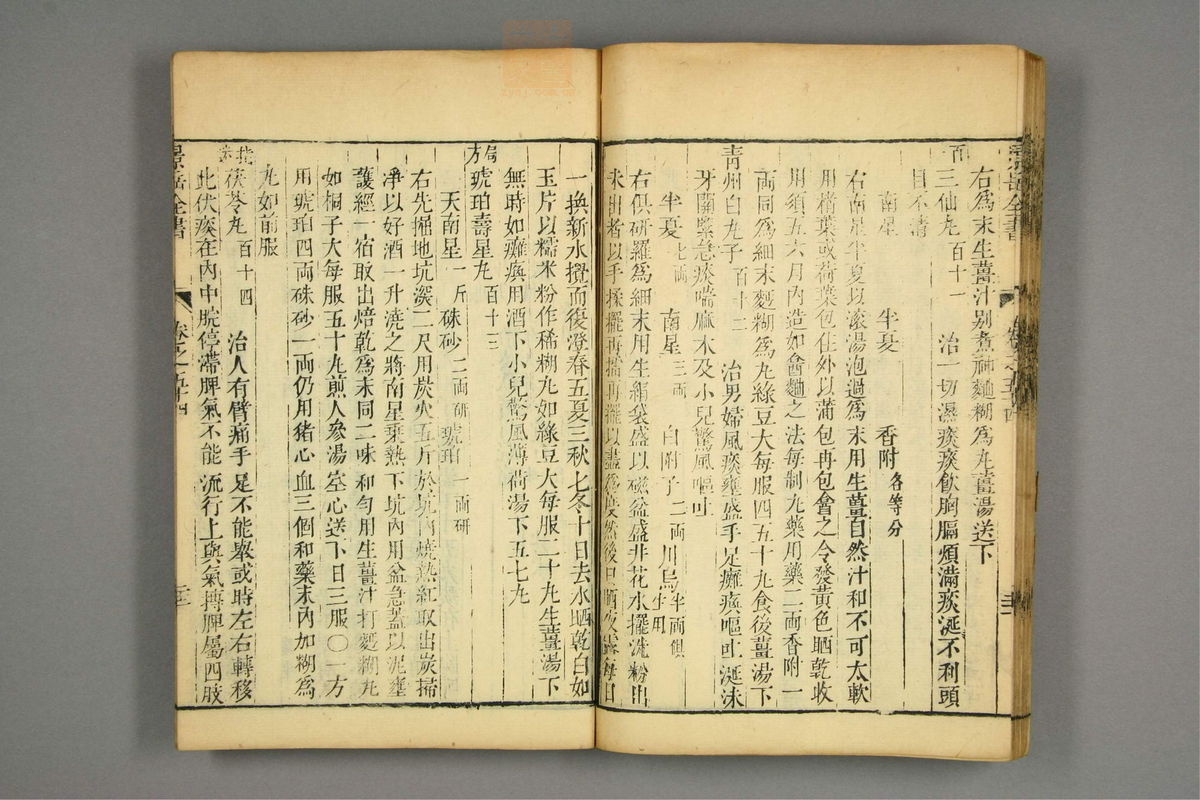 景岳全書 卷之五十四
右爲末生薑汁别煮神麯糊爲丸薑湯送下
三仙丸 百十一 治一切濕痰痰飲胸膈煩滿痰涎不利頭
目不清
南星 半夏 香附 各等分
右南星半夏以滚湯泡過爲末用生薑自然汁和不可太軟
用楮葉或荷葉包住外以蒲包再包罯之令發黃色晒乾收
用須五六月內造如罯麯之法每制丸藥用藥二両香附一
両同爲細末麫糊爲丸綠豆大每服四五十丸食後薑湯下
青州白丸子 百十二 治男婦風痰壅盛手足癱瘓嘔吐涎沫
牙關緊急痰喘麻木及小兒驚風嘔吐
半夏 七両 南星 三両 白附子 二両 川烏 半両俱生用
右俱研羅爲細末用生絹袋盛以磁盆盛井花水擺洗粉出
未出者以手揉擺再擂再擺以盡爲度然後日晒夜露每日
一換新水攪而後澄春五夏三秋七冬十日去水晒乾白如
玉片以糯米粉作稀糊丸如綠豆大每服二十丸生薑湯下
無時如癱瘓用酒下小兒驚風薄荷湯下五七丸
局方琥珀壽星丸 百十三
天南星 一斤 硃砂 二両研 琥珀 一両研
右先掘地坑深二尺用炭火五斤於坑內燒熱紅取出炭掃
净以好酒一升澆之將南星乘熱下坑內用盆急蓋以泥壅
護經一宿取出焙乾爲末同二味和勻用生薑汁打麫糊丸
如桐子大每服五十丸煎人參湯空心送下日三服〇一方
用琥珀四両硃砂一両仍用猪心血三個和藥末內加糊爲
丸如前服
茯苓丸 百十四 治人有臂痛手足不能舉或時左右轉移
此伏痰在內中脘停滯脾氣不能流行上與氣搏脾屬四肢
景岳全書 卷之五十四